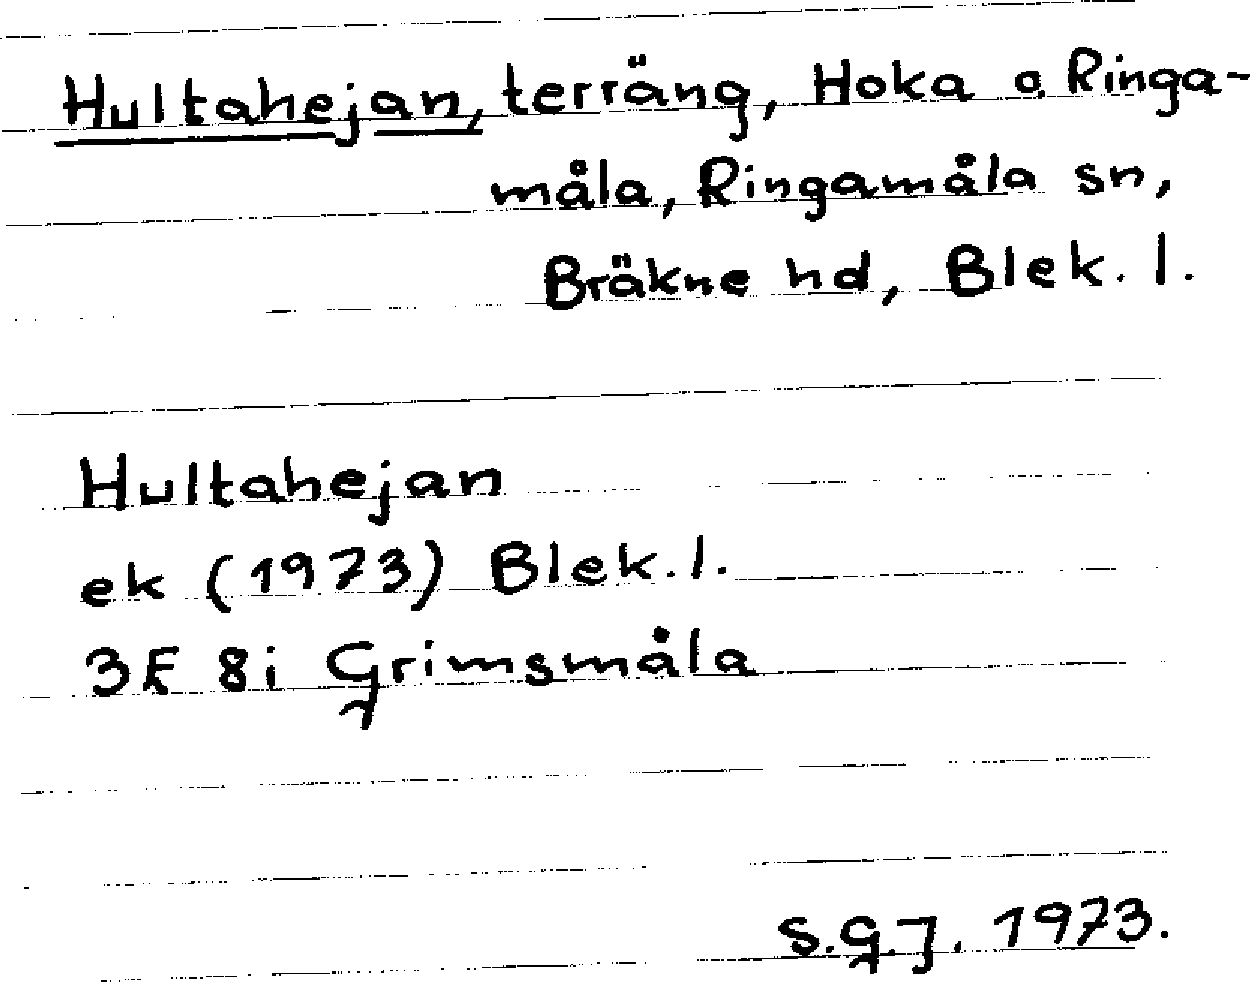 Hultahejan, terräng, Hoka o. Ringa-
måla, Ringamåla sn,
Bräkne hd, Blek. l.
Hultahejan
ek (1973) Blek. l.
3F 8i Grimsmåla
S.G.J. 1973.